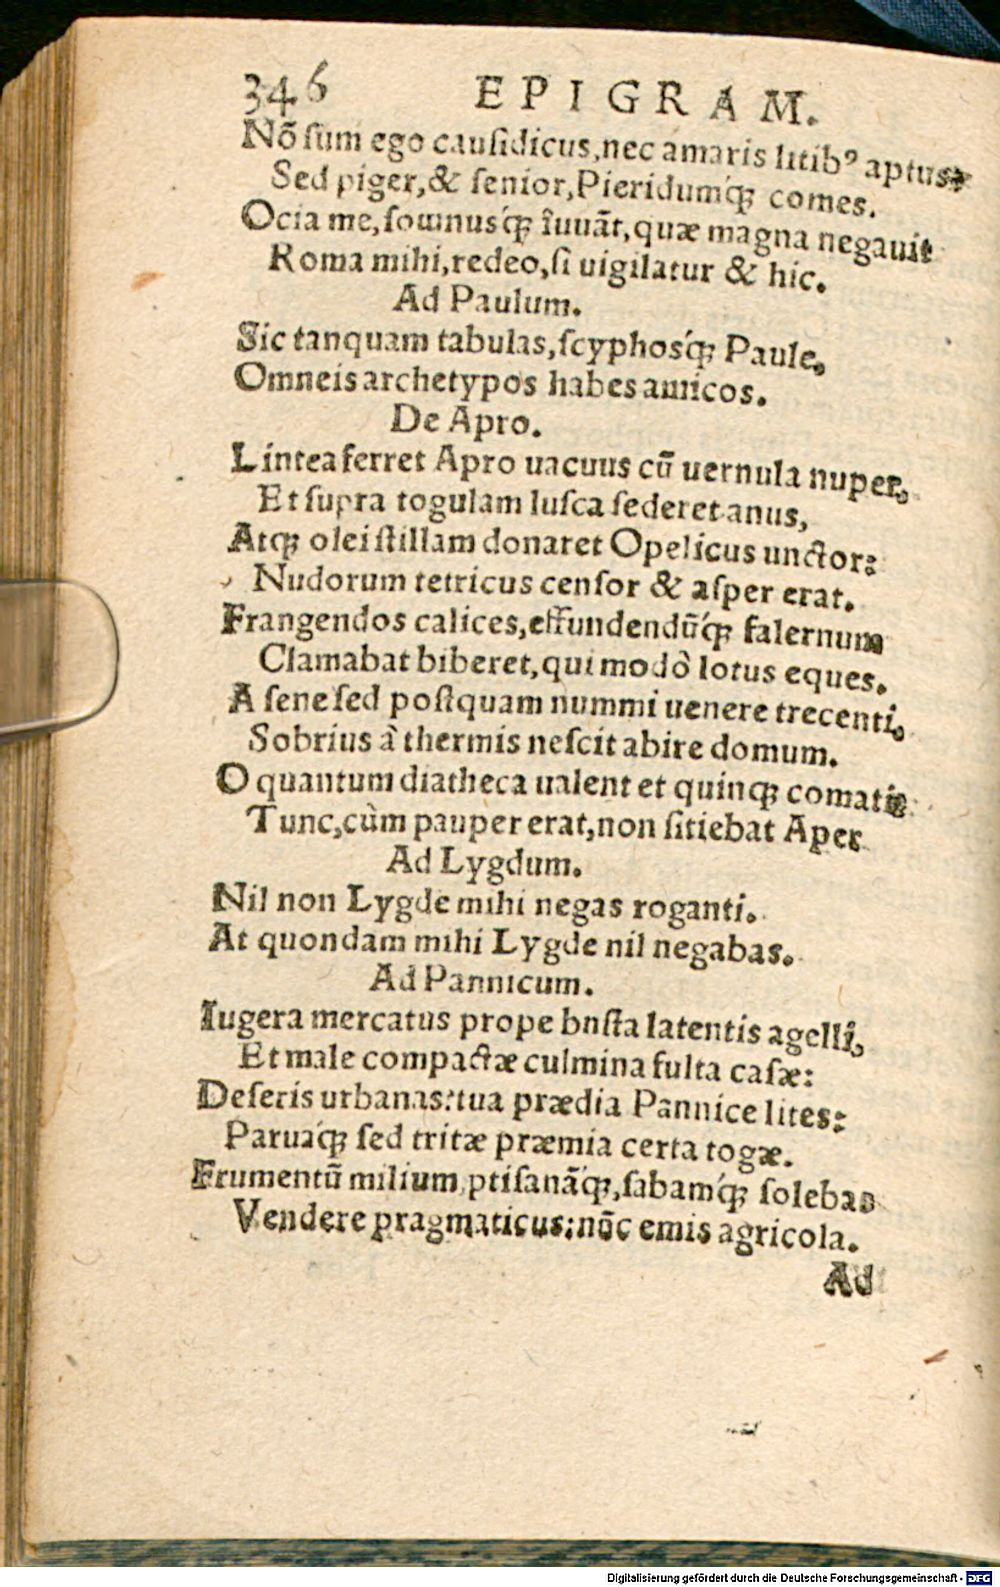 346 EPIGRAM.
Nõ ſum ego cauſidicus, nec amaris litibꝰ aptus,
Sed piger, & ſenior, Pieridumq́ꝫ comes.
Ocia me, ſomnusq́ꝫ iuuãt, quæ magna negauit
Roma mihi, redeo, ſi uigilatur & hic.
Ad Paulum.
Sic tanquam tabulas, ſcyphosq́ꝫ Paule,
Omneis archetypos habes amicos.
De Apro.
Lintea ferret Apro uacuus cũ uernula nuper,
Et ſupra togulam luſca ſederet anus,
Atqꝫ olei ſtillam donaret Opelicus unctor:
Nudorum tetricus cenſor & aſper erat.
Frangendos calices, effundendũq́ꝫ falernum
Clamabat biberet, qui modò lotus eques.
A ſene ſed poſtquam nummi uenere trecenti,
Sobrius à thermis neſcit abire domum.
O quantum diatheca ualent et quinqꝫ comati:
Tunc, cùm pauper erat, non ſitiebat Aper
Ad Lygdum.
Nil non Lygde mihi negas roganti.
At quondam mihi Lygde nil negabas.
Ad Pannicum.
Iugera mercatus prope bnſta latentis agelli,
Et male compactæ culmina fulta caſæ:
Deſeris urbanas: tua prædia Pannice lites:
Paruaq́ꝫ ſed tritæ præmia certa togæ.
Frumentũ milium, ptiſanãq́ꝫ, ſabamq́ꝫ ſolebas
Vendere pragmaticus: nũc emis agricola.
Ad
Digitalisierung gefördert durch die Deutsche Forschungsgemeinschaft - DFG